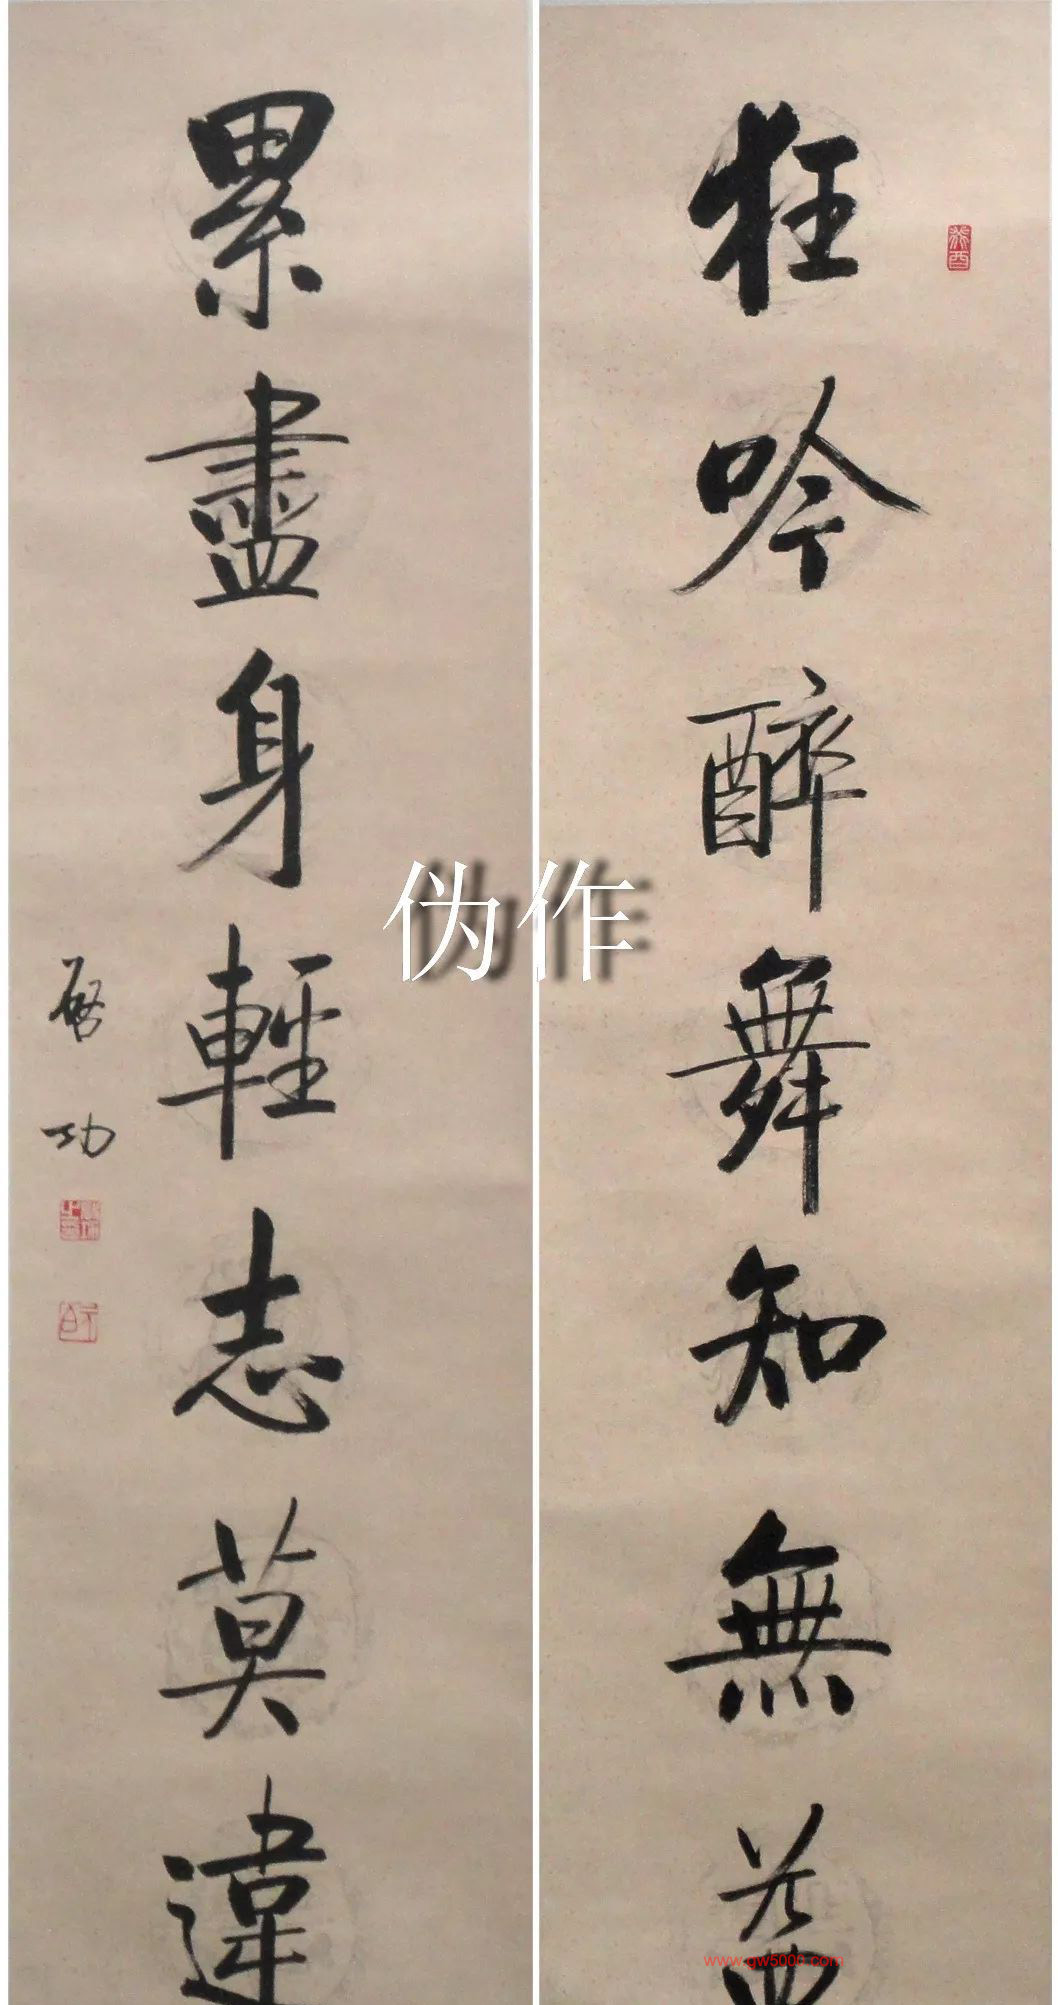 狂吟醉舞知無益
癸酉
累盡身輕志莫違
啓功
伪作
www.gw5000.com